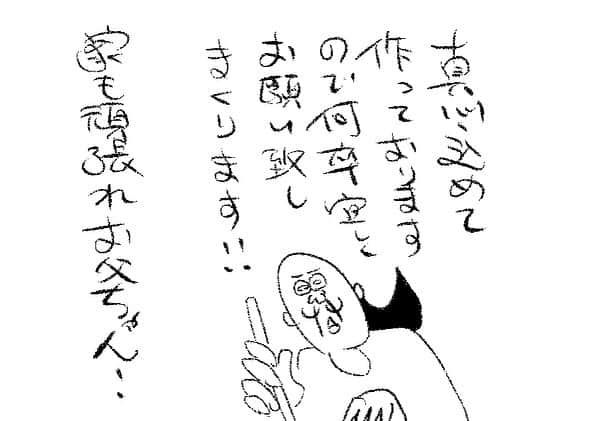 真心込めて
作っております
ので何卒宜しく
お願い致し
まくります!!
家も頑張れお父ちゃん‥